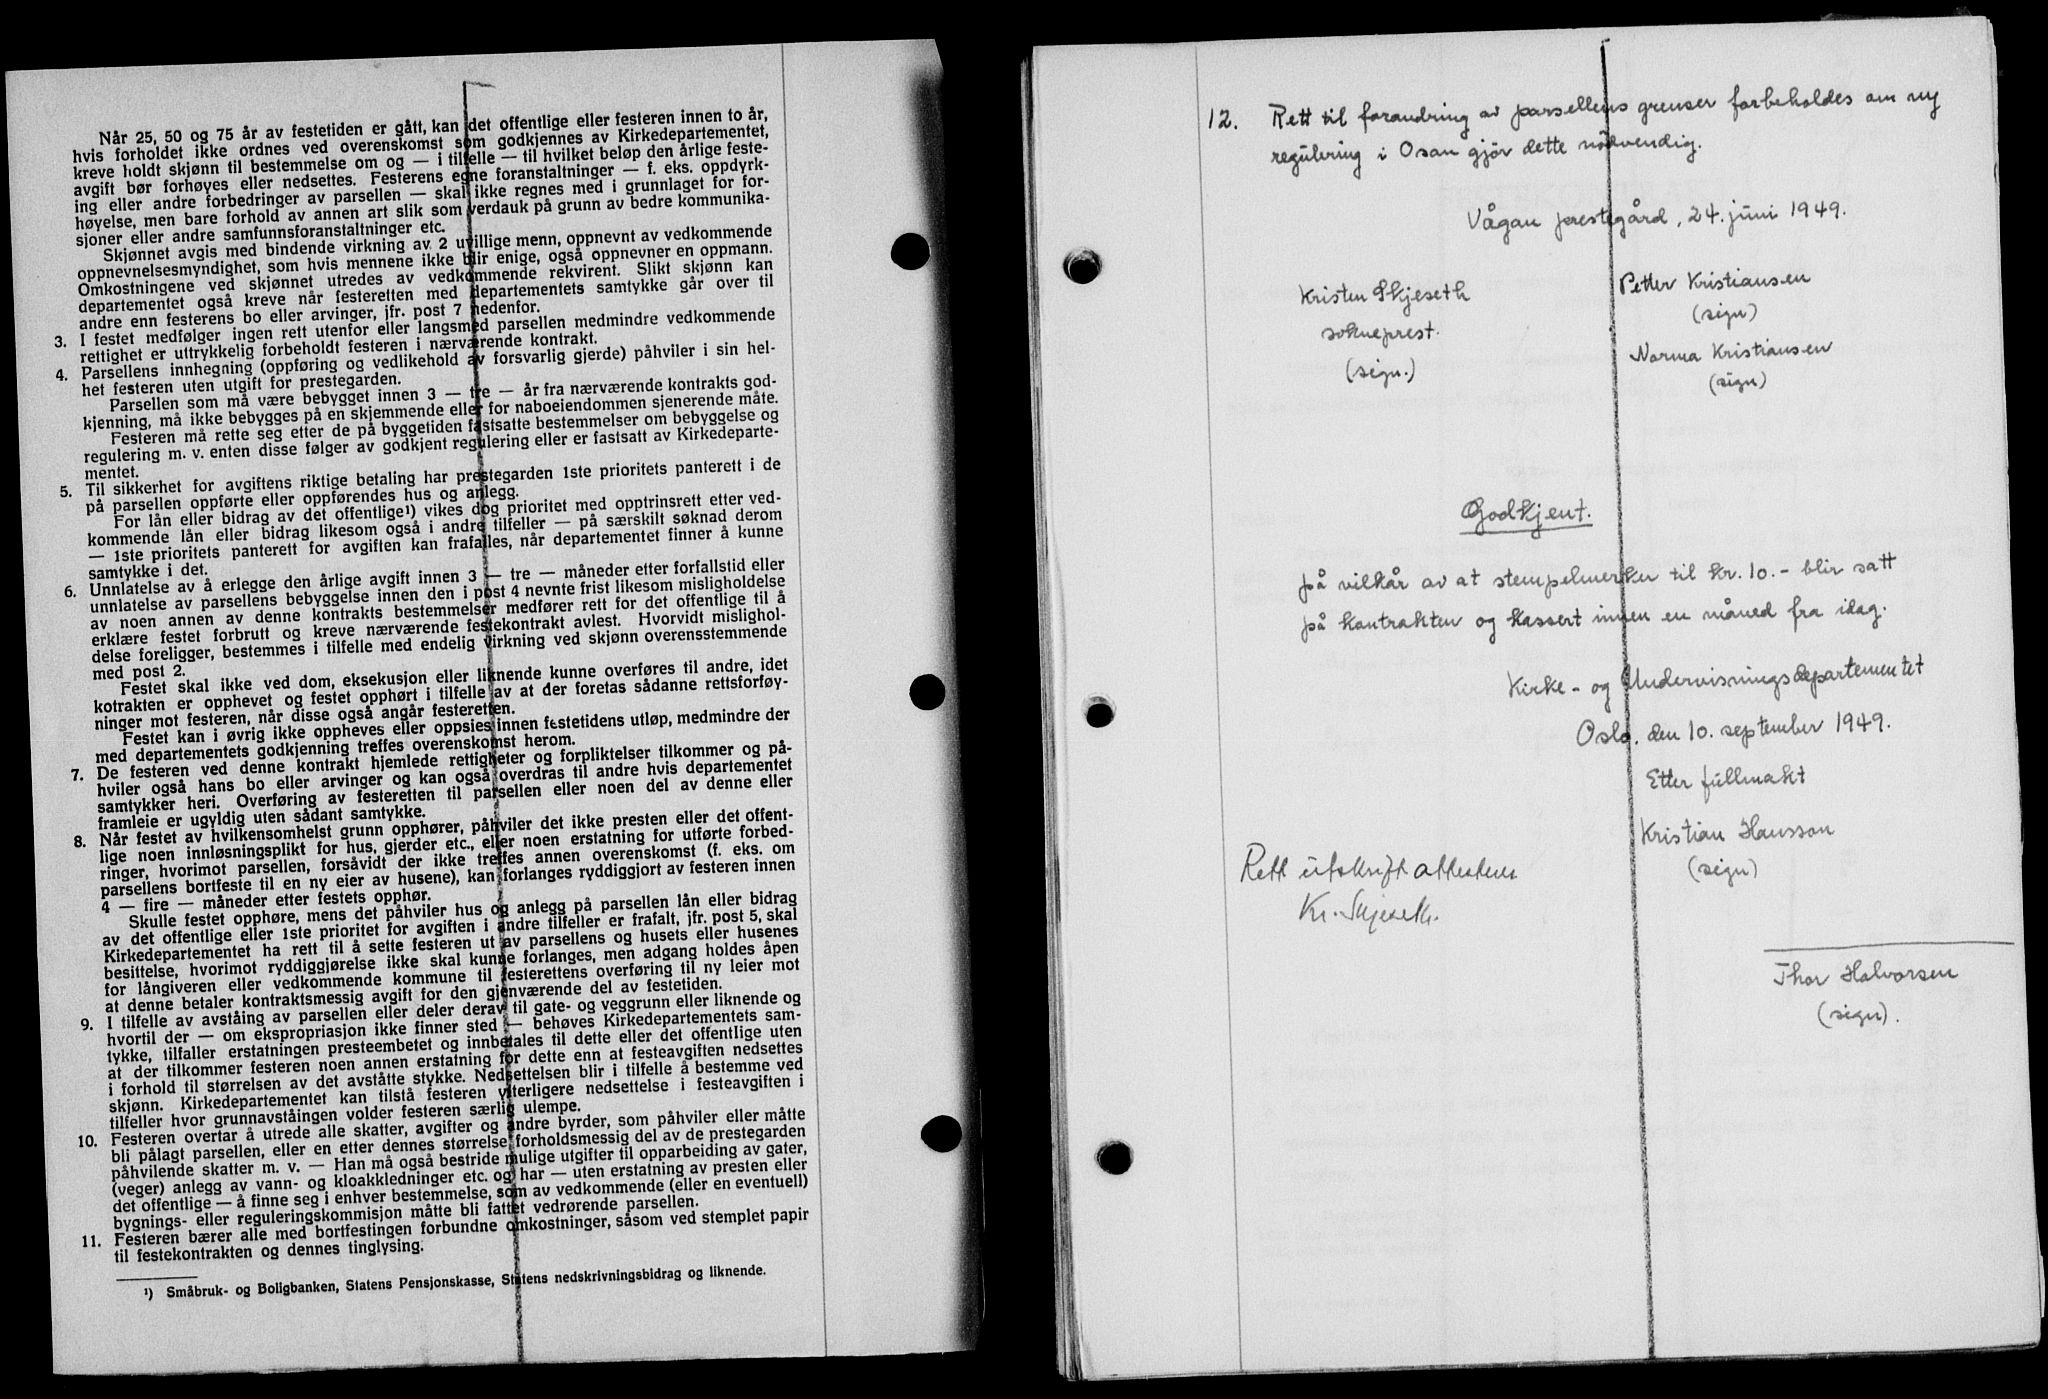 Når 25, 50 og 75 år av festetiden er gått, kan det offentlige eller festeren innen to år,
hvis forholdet ikke ordnes ved overenskomst som godkjennes av Kirkedepartementet,
kreve holdt skjønn til bestemmelse om og — i tilfelle — til hvilket beløp den årlige feste-
avgift bør forhøyes eller nedsettes. Festerens egne foranstaltninger — f. eks. oppdyrk-
ing eller andre forbedringer av parsellen — skal ikke regnes med i grunnlaget for for-
høyelse, men bare forhold av annen art slik som verdauk på grunn av bedre kommunika-
sjoner eller andre samfunnsforanstaltninger etc.
Skjønnet avgis med bindende virkning av 2 uvillige menn, oppnevnt av vedkommende
oppnevnelsesmyndighet, som hvis mennene ikke blir enige, også oppnevner en oppmann.
Omkostningene ved skjønnet utredes av vedkommende rekvirent. Slikt skjønn kan
departementet også kreve når festeretten med departementets samtykke går over til
andre enn festerens bo eller arvinger, jfr. post 7 nedenfor.
3. I festet medfølger ingen rett utenfor eller langsmed parsellen medmindre vedkommende
rettighet er uttrykkelig forbeholdt festeren i nærværende kontrakt.
4. Parsellens innhegning (oppføring og vedlikehold av forsvarlig gjerde) påhviler i sin hel-
het festeren uten utgift for prestegarden.
Parsellen som må være bebygget innen 3 — tre — år fra nærværende kontrakts god-
kjenning, må ikke bebygges på en skjemmende eller for naboeiendommen sjenerende måte.
Festeren må rette seg etter de på byggetiden fastsatte bestemmelser om bebyggelse og
regulering m. v. enten disse følger av godkjent regulering eller er fastsatt av Kirkedeparte-
mentet.
5. Til sikkerhet for avgiftens riktige betaling har prestegarden 1ste prioritets panterett i de
på parsellen oppførte eller oppførendes hus og anlegg.
For lån eller bidrag av det offentlige¹) vikes dog prioritet med opptrinsrett etter ved-
kommende lån eller bidrag likesom også i andre tilfeller — på særskilt søknad derom
— 1ste prioritets panterett for avgiften kan frafalles, når departementet finner å kunne
samtykke i det.
6. Unnlatelse av å erlegge den årlige avgift innen 3 — tre — måneder etter forfallstid eller
unnlatelse av parsellens bebyggelse innen den i post 4 nevnte frist likesom misligholdelse
av noen annen av denne kontrakts bestemmelser medfører rett for det offentlige til å
erklære festet forbrutt og kreve nærværende festekontrakt avlest. Hvorvidt mislighol-
delse foreligger, bestemmes i tilfelle med endelig virkning ved skjønn overensstemmende
med post 2.
Festet skal ikke ved dom, eksekusjon eller liknende kunne overføres til andre, idet
kotrakten er opphevet og festet opphørt i tilfelle av at der foretas sådanne rettsforføy-
ninger mot festeren, når disse også angår festeretten.
Festet kan i øvrig ikke oppheves eller oppsies innen festetidens utløp, medmindre der
med departementets godkjenning treffes overenskomst herom.
7. De festeren ved denne kontrakt hjemlede rettigheter og forpliktelser tilkommer og på-
hviler også hans bo eller arvinger og kan også overdras til andre hvis departementet
samtykker heri. Overføring av festeretten til parsellen eller noen del av denne eller
framleie er ugyldig uten sådant samtykke.
8. Når festet av hvilkensomhelst grunn opphører, påhviler det ikke presten eller det offent-
lige noen innløsningsplikt for hus, gjerder etc., eller noen erstatning for utførte forbed-
ringer, hvorimot parsellen, forsåvidt der ikke treffes annen overenskomst (f. eks. om
parsellens bortfeste til en ny eier av husene), kan forlanges ryddiggjort av festeren innen
4 — fire — måneder etter festets opphør.
Skulle festet opphøre, mens det påhviler hus og anlegg på parsellen lån eller bidrag
av det offentlige eller 1ste prioritet for avgiften i andre tilfeller er frafalt, jfr. post 5, skal
Kirkedepartementet ha rett til å sette festeren ut av parsellens og husets eller husenes
besittelse, hvorimot ryddiggjørelse ikke skal kunne forlanges, men adgang holdes åpen
for långiveren eller vedkommende kommune til festerettens overføring til ny leier mot
at denne betaler kontraktsmessig avgift for den gjenværende del av festetiden.
9. I tilfelle av avståing av parsellen eller deler derav til gate- og veggrunn eller liknende og
hvortil der — om ekspropriasjon ikke finner sted — behøves Kirkedepartementets sam-
tykke, tilfaller erstatningen presteembetet og innbetales til dette eller det offentlige uten
at der tilkommer festeren noen annen erstatning for dette enn at festeavgiften nedsettes
i forhold til størrelsen av det avståtte stykke. Nedsettelsen blir i tilfelle å bestemme ved
skjønn. Kirkedepartementet kan tilstå festeren ytterligere nedsettelse i festeavgiften i
tilfeller hvor grunnavståingen volder festeren særlig ulempe.
10. Festeren overtar å utrede alle skatter, avgifter og andre byrder, som påhviler eller måtte
bli pålagt parsellen, eller en etter dennes størrelse forholdsmessig del av de prestegarden
påhvilende skatter m. v. — Han må også bestride mulige utgifter til opparbeiding av gater,
(veger) anlegg av vann- og kloakkledninger etc. og har — uten erstatning av presten eller
det offentlige — å finne seg i enhver bestemmelse, som av vedkommende (eller en eventuell)
bygnings- eller reguleringskommisjon måtte bli fattet vedrørende parsellen.
11. Festeren bærer alle med bortfestingen forbundne omkostninger, såsom ved stemplet papir
til festekontrakten og dennes tinglysing.
¹) Småbruk- og Boligbanken, Statens Pensjonskasse, Statens nedskrivningsbidrag og liknende.
12. Rett til forandring av parsellens grenser forbeholdes om ny
regulering i Osan gjør dette nødvendig.
Vågan prestegård, 24. juni 1949.
Kristen Skjeseth
sokneprest.
(sign.)
Petter Kristiansen
(sign)
Norma Kristiansen
(sign)
Godkjent.
på vilkår av at stempelmerker til kr. 10.- blir satt
på kontrakten og kassert innen en måned fra idag.
Kirke- og Undervisningsdepartementet
Oslo, den 10. september 1949.
Etter fullmakt
Kristian Hansson
(sign)
Rett utskrift attesteres
Kr. Skjeseth.
Thor Halvorsen
(sign).